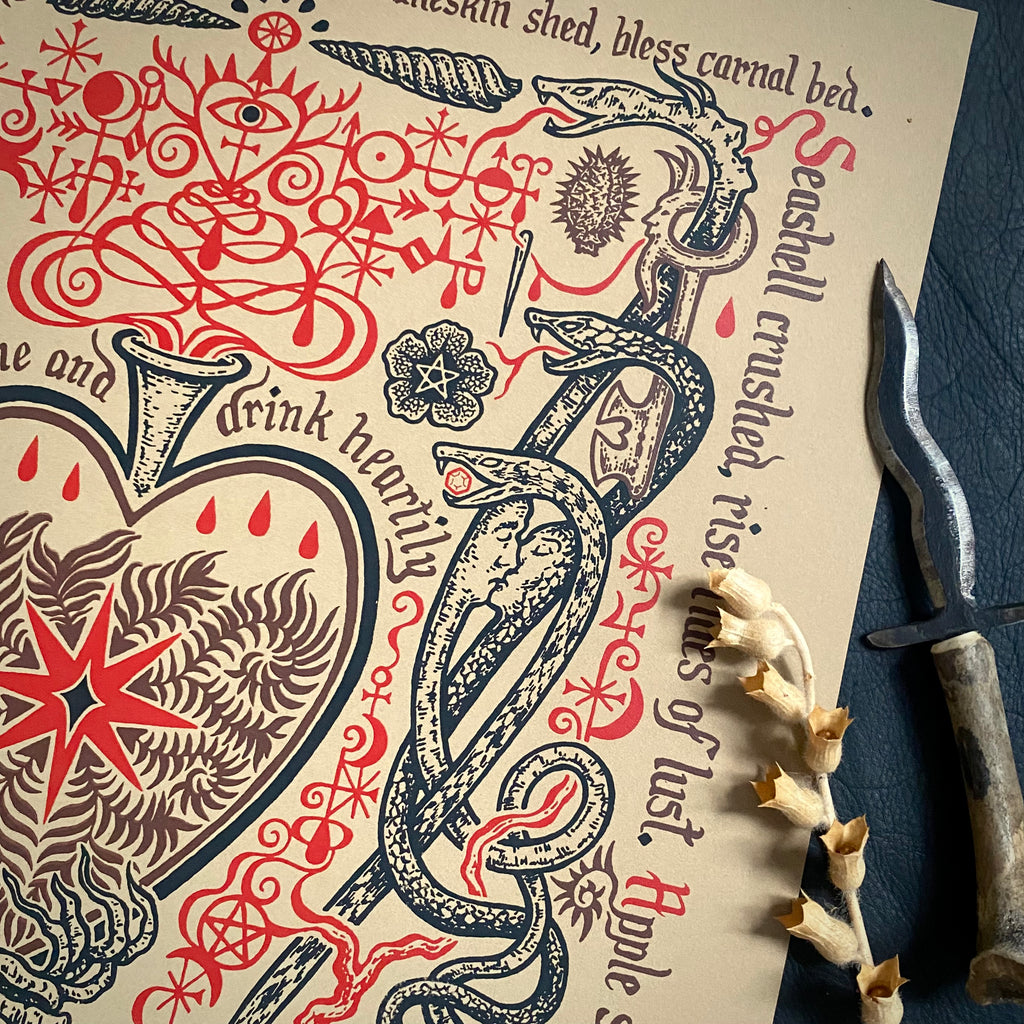 shed, bless carnal bed.
Seashell crushed, rise of lust. Apple
and
drink heartily